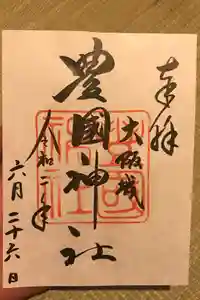 奉拝
大阪城
豊國神社
令和二年
六月二十六日